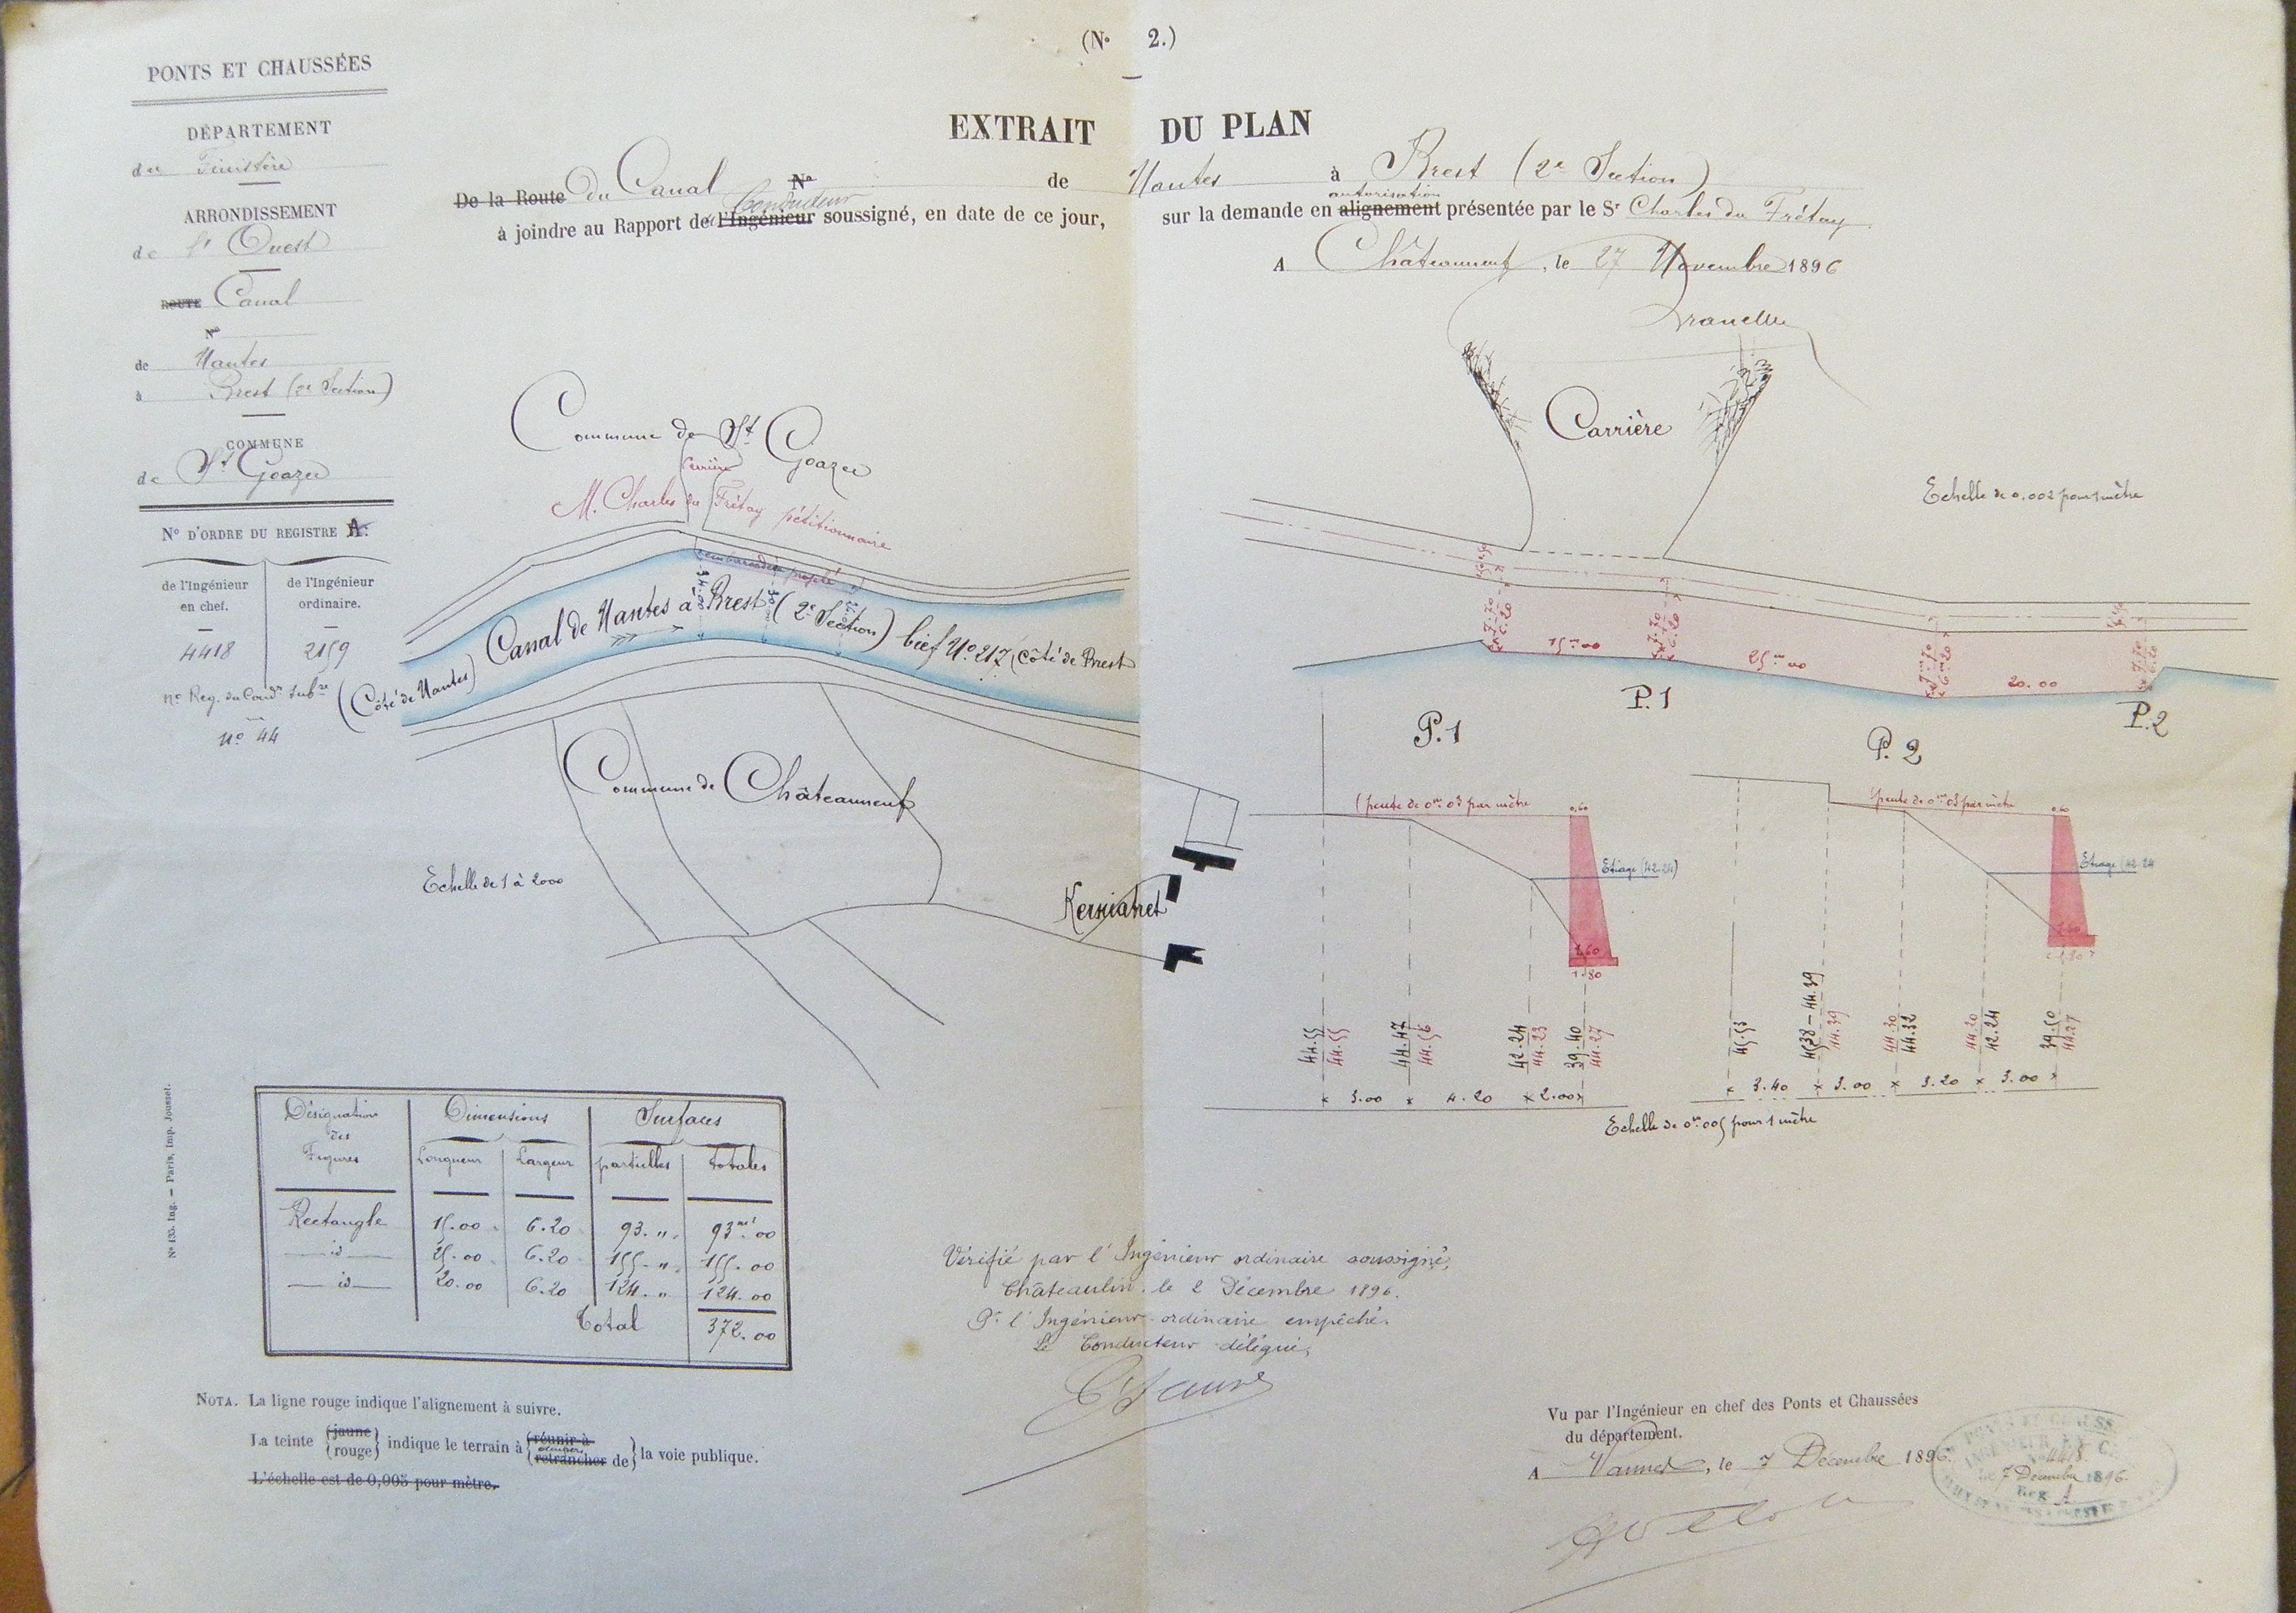 (N° 2.)
PONTS ET CHAUSSÉES
DÉPARTEMENT
du Finistère
ARRONDISSEMENT
de l'Ouest
ROUTE Canal
N°
de Nantes
à Brest (2e Section)
COMMUNE
de St Goazec
N° D'ORDRE DU REGISTRE A.
de l'Ingénieur en chef.
de l'Ingénieur ordinaire.
4418
2159
n° Reg. du Condr Subre
n° 44
EXTRAIT DU PLAN
De la Route du Canal N° de Nantes à Brest (2e Section)
Conducteur
autorisation
à joindre au Rapport de l'Ingénieur soussigné, en date de ce jour, sur la demande en alignement présentée par le Sr Charles du Frétay
A Châteauneuf, le 27 Novembre 1896
Commune de St Goazec
Carrière
M. Charles du Frétay pétitionnaire
embarcadère projeté
Canal de Nantes à Brest (2e Section) bief N° 217 (côté de Brest
(Côté de Nantes)
Commune de Châteauneuf
Echelle de 1 à 2000
Carrière
Echelle de 0.002 pour 1 mètre
7.70
6.20
7.70
6.20
7m.70
6m.20
7.70
6.20
15m.00
25m.00
20.00
P.1
P.2
P.1
P.2
(pente de 0m.03 par mètre
0,60
Etiage (42.24)
1.60
1.80
44.55
44.55
44.47
44.56
42.24
44.23
39.40
44.27
3.00
4.20
2.00
pente de 0m.03 par mètre
0.60
Etiage (42.24
1.60
1.80
45.53
45.38 – 44.39
44.39
44.30
44.32
44.20
42.24
39.50
44.27
3.40
3.00
3.20
3.00
Echelle de 0m.005 pour 1 mètre
Désignation des Figures
Dimensions
Surfaces
Longueur
Largeur
partielles
totales
Rectangle 15.00 6.20 93. " 93m².00
id 25.00 6.20 155. " 155.00
id 20.00 6.20 124. " 124.00
Total 372.00
N° 135. Ing. — Paris, Imp. Jousset.
Vérifié par l'Ingénieur ordinaire soussigné,
Châteaulin, le 2 Décembre 1896.
Pr l'Ingénieur ordinaire empêché.
Le Conducteur délégué,
NOTA. La ligne rouge indique l'alignement à suivre.
La teinte (jaune) (rouge) indique le terrain à (réunir à) occuper (retrancher de) la voie publique.
L'échelle est de 0,005 pour mètre.
Vu par l'Ingénieur en chef des Ponts et Chaussées
du département.
A Vannes, le 7 Décembre 1896.
PONTS ET CHAUSSÉES
4418
le 7 Décembre 1896
Reg. A